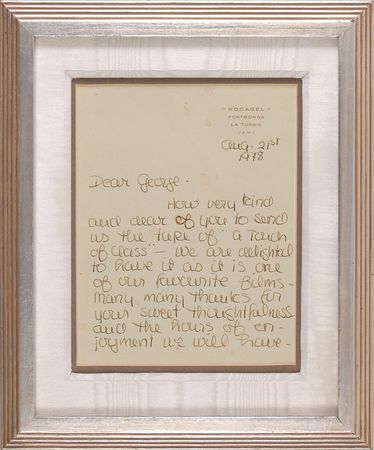 "ROCAGEL"
FONTBONNE
LA TURBIE
(A.M.)
Aug. 21st
1978
Dear George -
How very kind
and dear of you to send
us the tape of "a Touch
of Class" - we are delighted
to have it as it is one
of our favourite films -
many, many thanks for
your sweet thoughtfulness
and the hours of en-
joyment we will have -